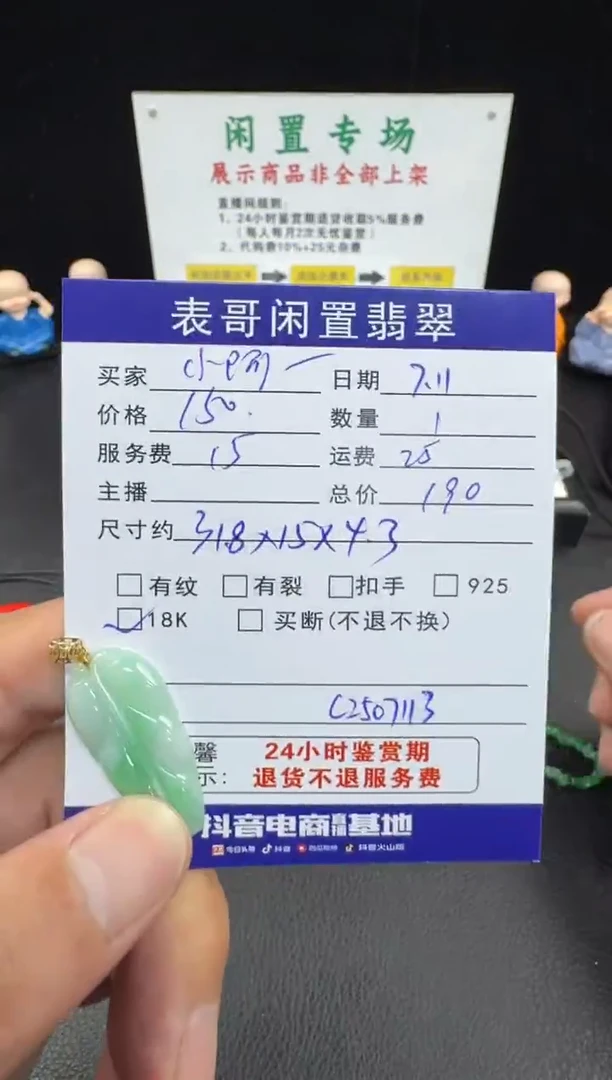 闲置专场
展示商品非全部上架
直播间细则:
1、24小时鉴赏期退货收取5%服务费
(每人每月2次无忧鉴赏)
2、代购费10%+25元杂费
表哥闲置翡翠
买家 日期 7.11
价格 150. 数量 1
服务费 15 运费 25
主播 总价 190
尺寸约 31.8×15×4.3
有纹 有裂 扣手 925
18K 买断(不退不换)
C2507113
馨 24小时鉴赏期
示: 退货不退服务费
抖音电商直播基地
今日头条 抖音 西瓜视频 抖音火山版